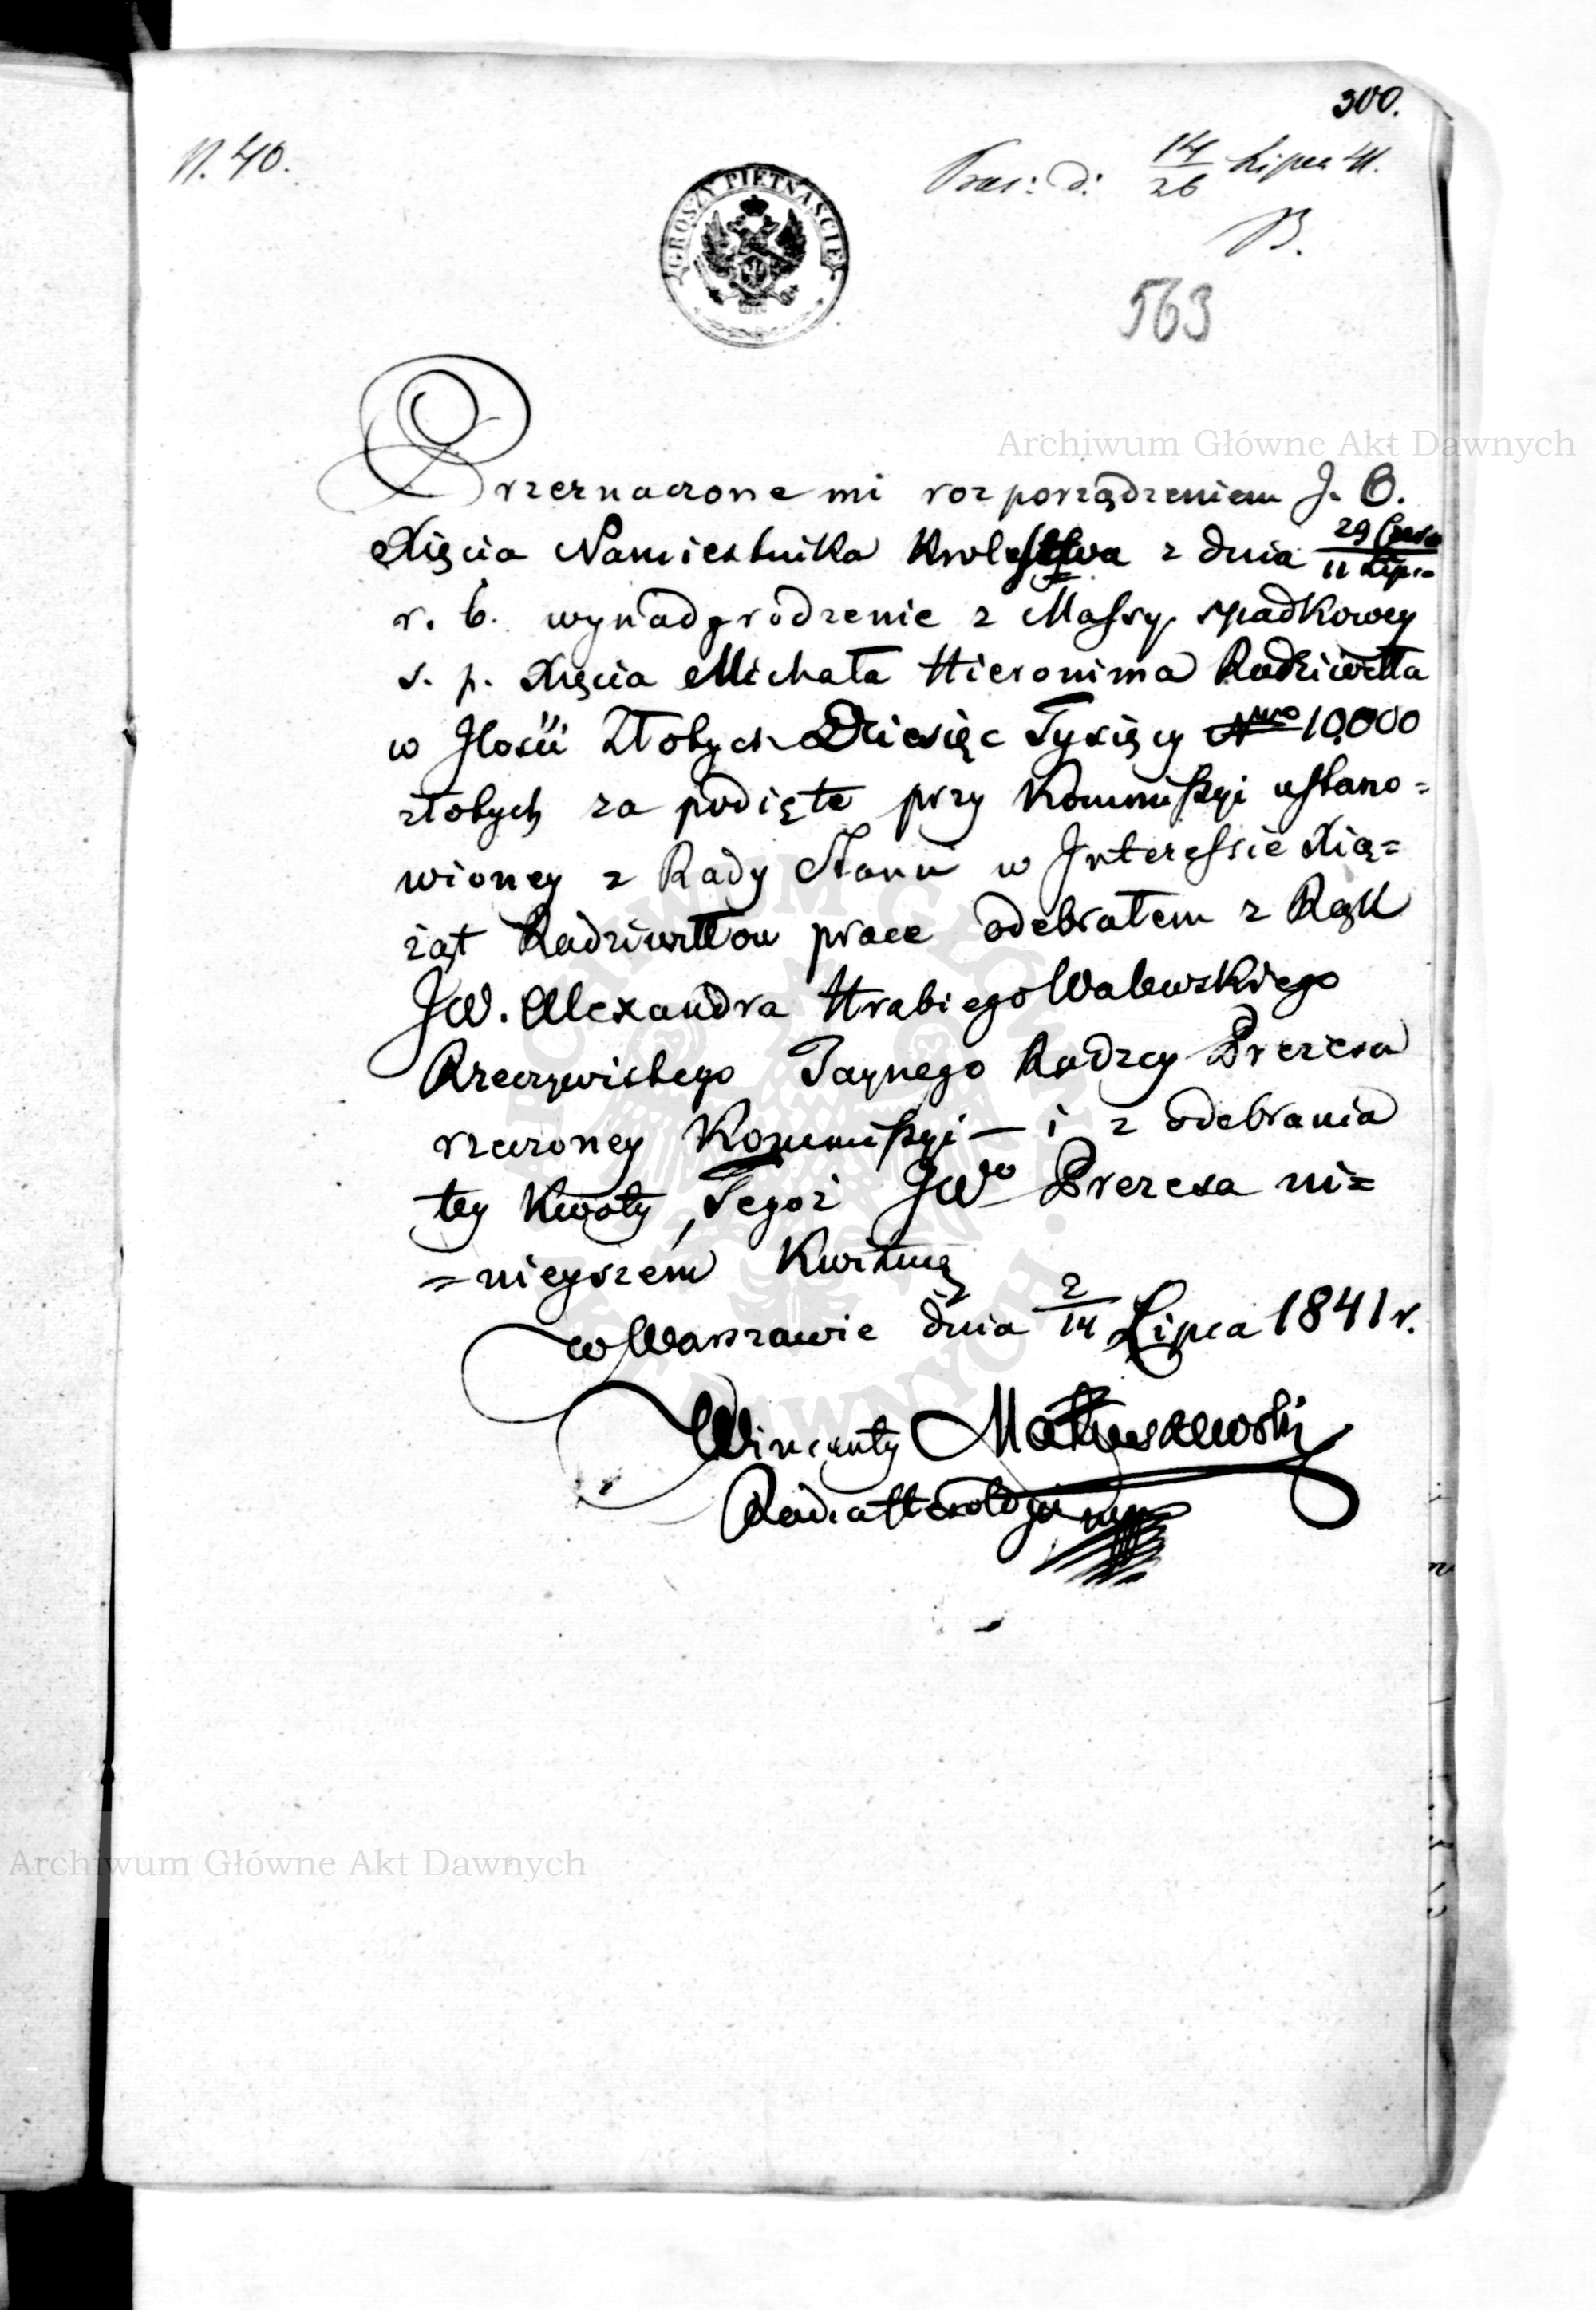 300.
N. 40.
Praes: d: 14/26 Lipca 41.
B.
GROSZY PIETNAŚCIE
563
Archiwum Główne Akt Dawnych
Przeznaczone mi rozporządzeniem J. O.
Xięcia Namiestnika Krolestwa z dnia 29 Czerw/11 Lipca
r. b. wynadgrodzenie z Massy spadkowey
s. p. Xięcia Michała Hieronima Radziwiłła
w Jlości Złotych Dziesięc Tysięcy Nro 10,000
złotych za podięte przy Kommissyi ustano=
wioney z Rady Stanu w Interessie Xią=
żąt Radziwiłłow prace odebrałem z Rąk
JW. Alexandra Hrabiego Walewskiego
Rzeczywistego Taynego Radzcy Prezesa
rzeczoney Kommissyi — i z odebrania
tey Kwoty, Tegoż JWo Prezesa ni=
=nieyszém Kwituię
w Warszawie dnia 2/14 Lipca 1841 r.
Wincenty Matuszewski
Radca Heroldyi mp
Archiwum Główne Akt Dawnych